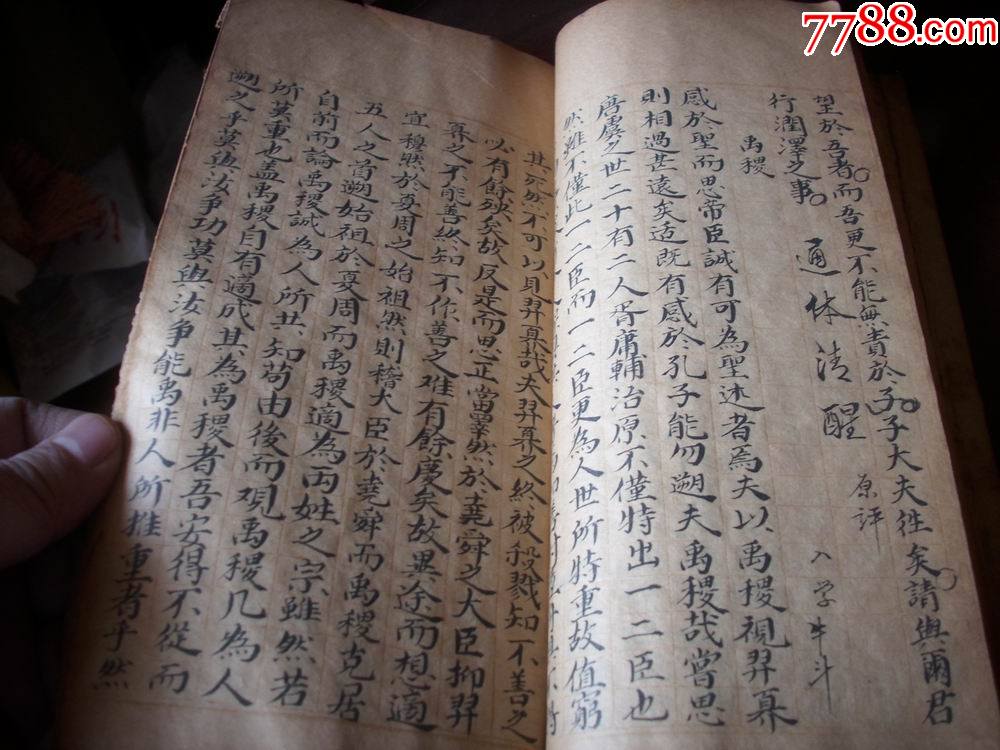 7788.com
望於吾者而吾更不能無責於子子大夫徃矣請與爾君
行潤澤之事
通体清醒
原評
入学
禹稷
感於聖而思帝臣誠有可為聖述者焉夫以禹稷視羿奡
則相過甚遠矣适既有感於孔子能勿朔夫禹稷哉嘗思
唐虞之世二十有二人胥庸輔治原不僅特出一二臣也
然雖不僅此一二臣而一二臣更為人世所特重故值窮
其死然不可以見羿奡哉夫羿奡之終被殺戮知不善之
必有餘殃矣故反是而思正當業然於堯舜之大臣抑羿
奡之不能善終知不作善之难有餘慶矣故異途而想適
宜穆然於夏周之始祖然則稽大臣於堯舜而禹稷克居
五人之首遡始祖於夏周而禹稷適為两姓之宗雖然若
自前而論禹稷誠為人所共知苟由後而观禹稷几為人
所莫重也盖禹稷自有適成其為禹稷者吾安得不從而
遡之乎莫與汝争功莫與汝争能禹非人所推重者乎然